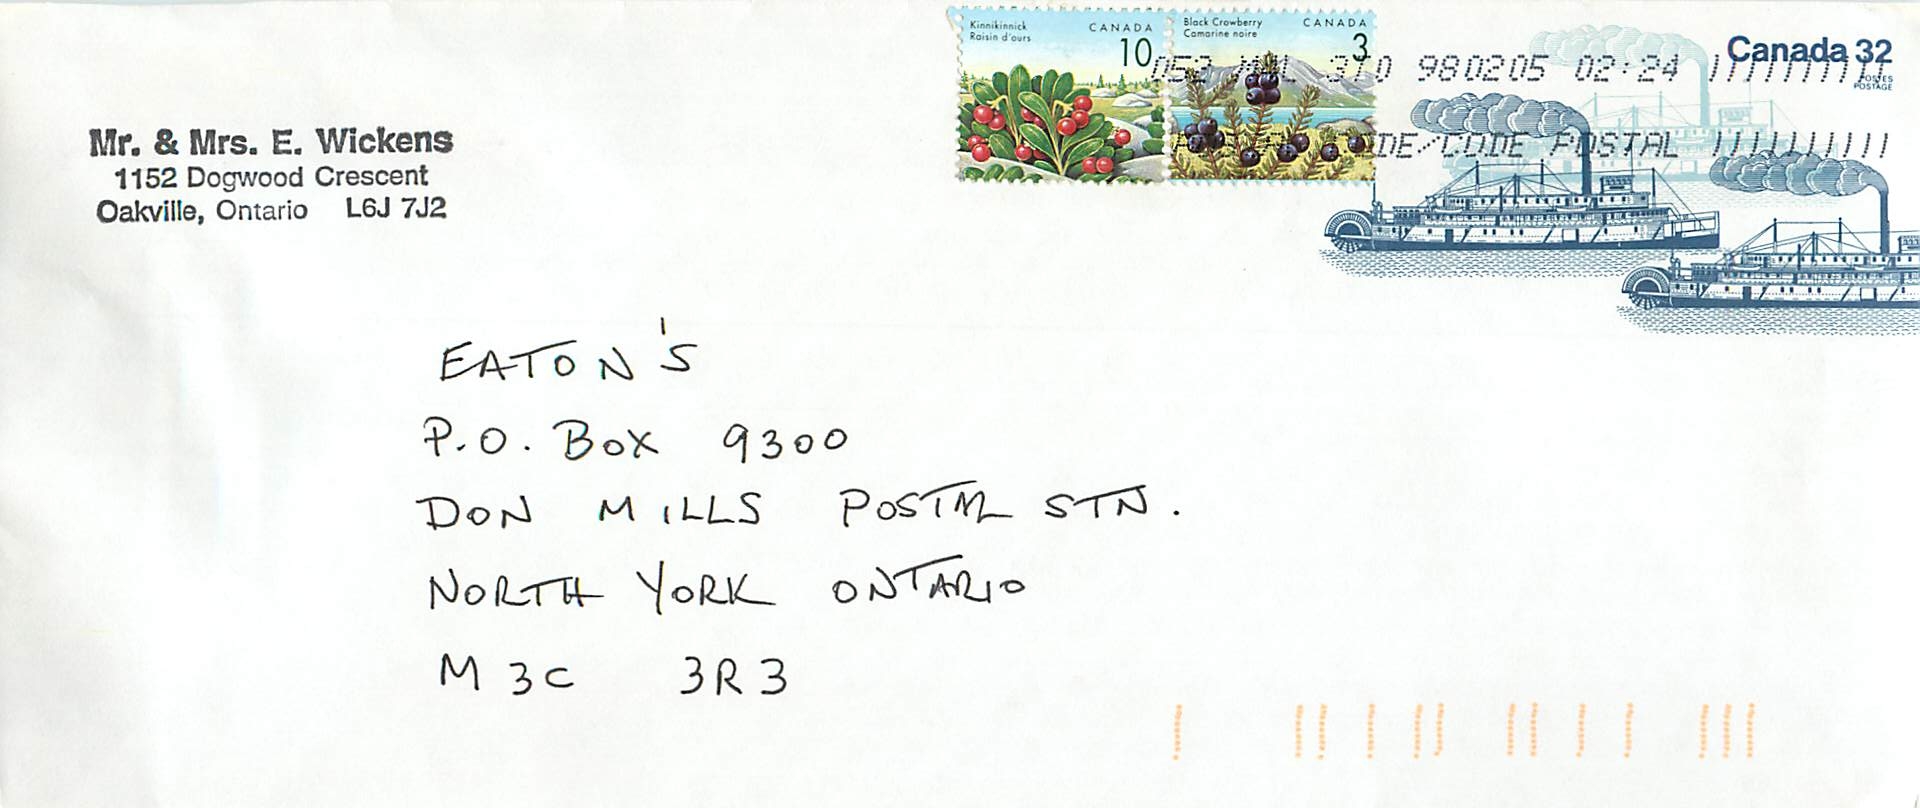 Kinnikinnick
Raisin d'ours
CANADA
10
Black Crowberry
Camarine noire
CANADA
3
Canada 32
POSTES
POSTAGE
053 310 980205 02:24
DE/CODE POSTAL
Mr. & Mrs. E. Wickens
1152 Dogwood Crescent
Oakville, Ontario L6J 7J2
EATON'S
P.O. BOX 9300
DON MILLS POSTAL STN.
NORTH YORK ONTARIO
M3C 3R3